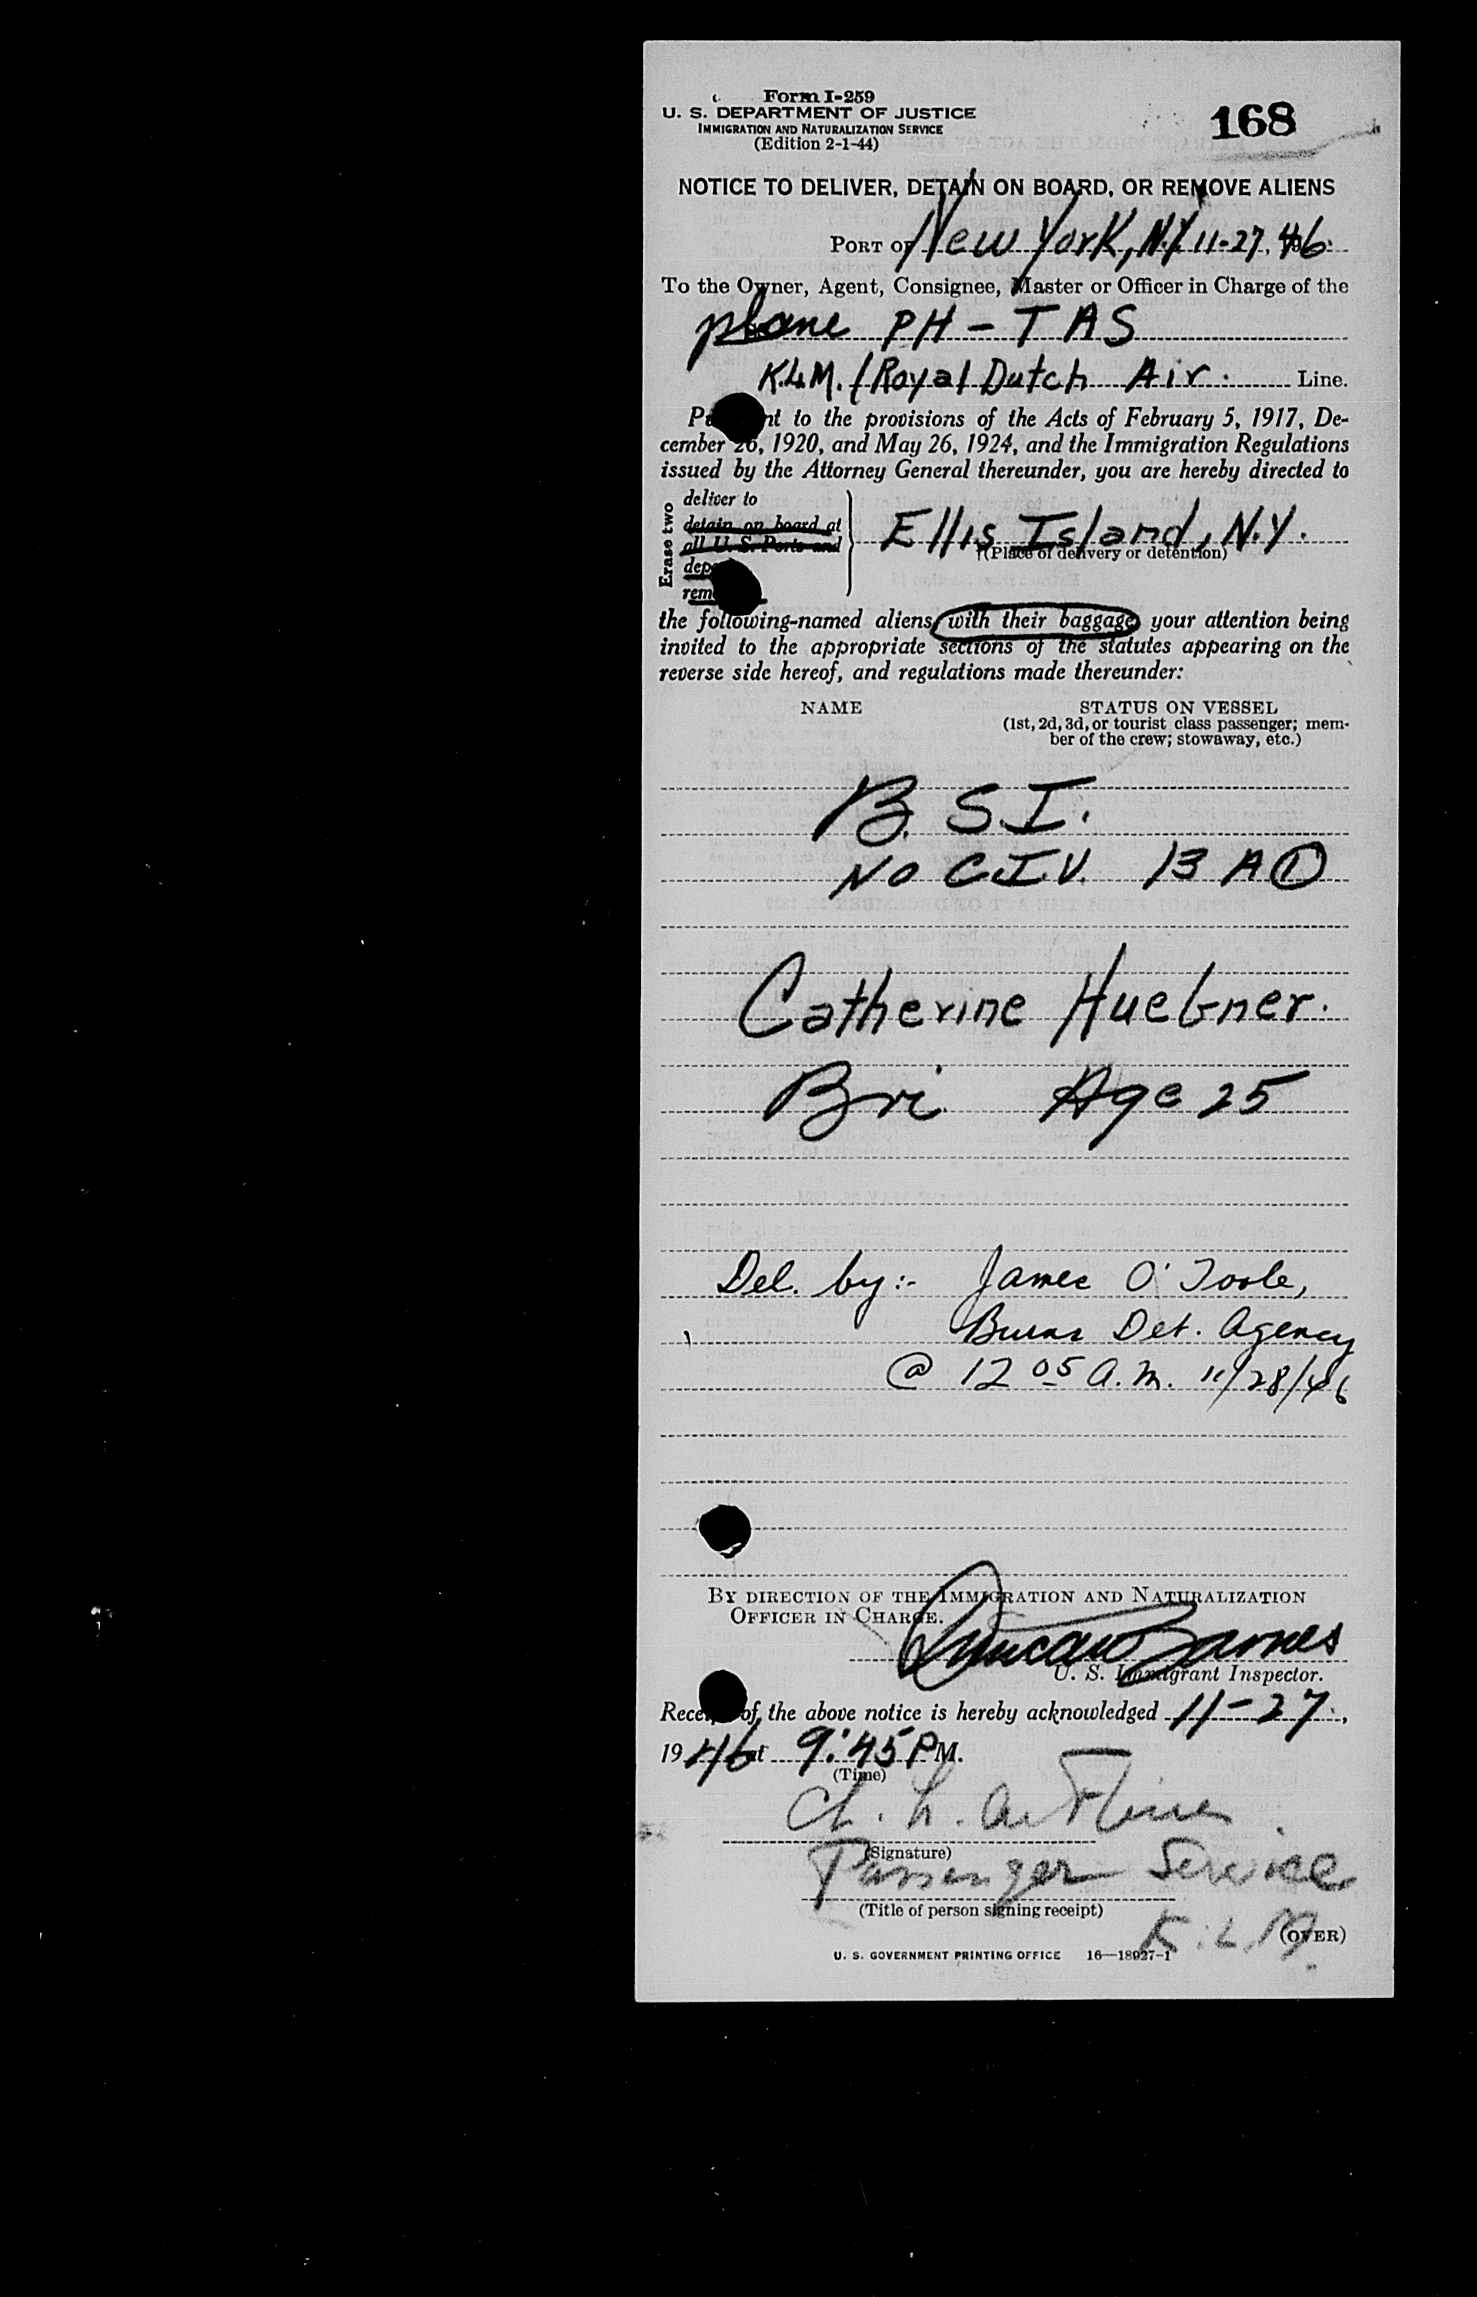 Form I-259
U. S. DEPARTMENT OF JUSTICE
IMMIGRATION AND NATURALIZATION SERVICE
(Edition 2-1-44)
168
NOTICE TO DELIVER, DETAIN ON BOARD, OR REMOVE ALIENS
PORT OF New York, N.Y. 11-27, 46.
To the Owner, Agent, Consignee, Master or Officer in Charge of the
plane PH-TAS
K.L.M. / Royal Dutch Air. Line.
nt to the provisions of the Acts of February 5, 1917, De-
cember 26, 1920, and May 26, 1924, and the Immigration Regulations
issued by the Attorney General thereunder, you are hereby directed to
Erase two
deliver to
detain on board at
all U. S. Ports and
dep
rem
Ellis Island, N.Y.
(Place of delivery or detention)
the following-named aliens, with their baggage, your attention being
invited to the appropriate sections of the statutes appearing on the
reverse side hereof, and regulations made thereunder:
NAME
STATUS ON VESSEL
(1st, 2d, 3d, or tourist class passenger; mem-
ber of the crew; stowaway, etc.)
B. S.I.
NO C.I.V. 13 A ①
Catherine Huebner.
Bri Age 25
Del. by:- James O'Toole,
Burns Det. Agency
@ 12 05 A.M. 11/28/46
BY DIRECTION OF THE IMMIGRATION AND NATURALIZATION
OFFICER IN CHARGE.
Duncan Barnes
U. S. Immigrant Inspector.
Receipt of the above notice is hereby acknowledged 11-27,
1946 at 9:45 P M.
(Time)
(Signature)
Passenger Service
(Title of person signing receipt)
K.L.M.
(OVER)
U. S. GOVERNMENT PRINTING OFFICE 16—18927-1